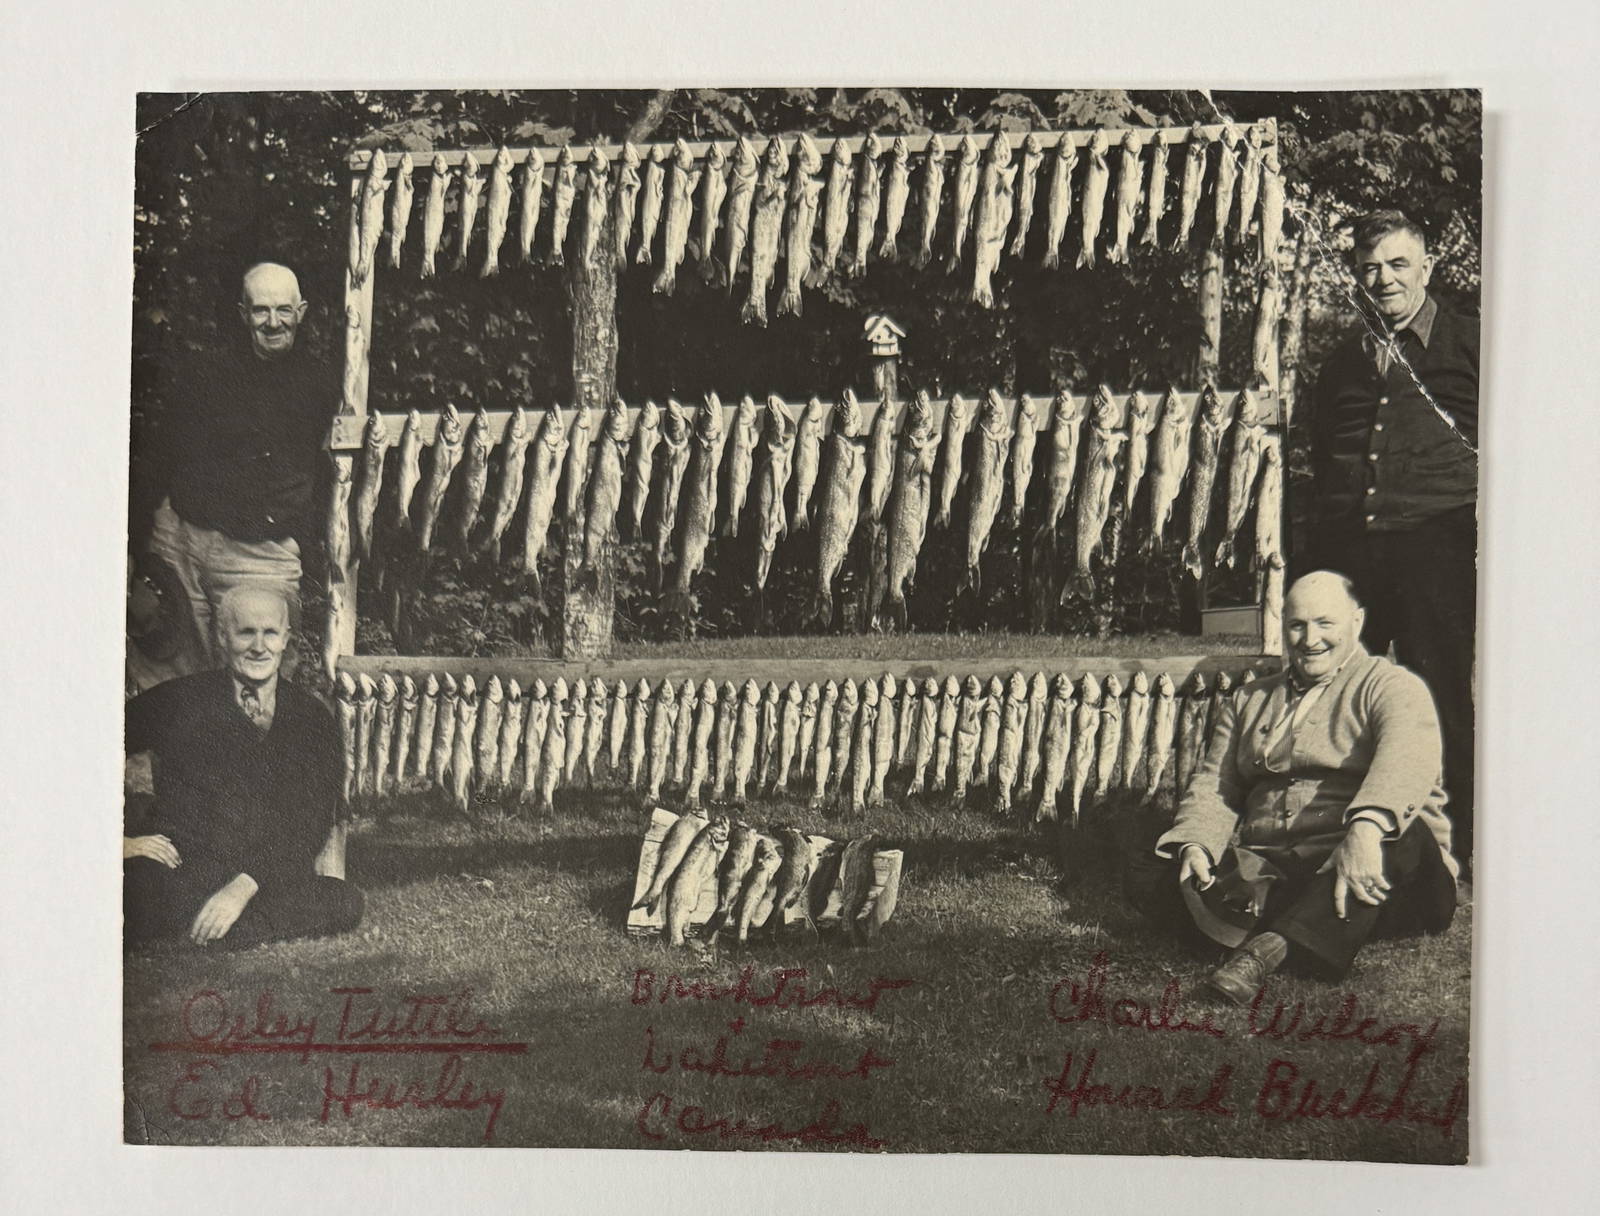 Osley Tuttle
Ed Hurley
Brook trout
+
Laketrout
Canada
Charlie Wilcox
Howard